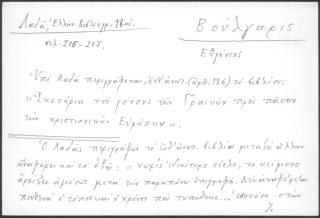 Λαδᾶ, Ἑλλην. Βιβλιογρ. 18 αἰ.
σελ. 206-207.
Βούλγαρις
Εὐγένιος
Ὑπὸ Λαδᾶ περιγράφεται, (ἀριθ. 186) τὸ βιβλίον:
«Ἱκετηρία τοῦ γένους τῶν Γραικῶν πρὸς πᾶσαν
τὴν χριστιανικὴν Εὐρώπην».
Ὁ Λαδᾶς περιγράφων τὸ βιβλίον μεταξὺ ἄλλων
ἀναφέρει καὶ τὰ ἑξῆς: «χωρὶς ἰδιαίτερο τίτλο, τὸ κείμενο
ἀρχίζει ἀμέσως μετὰ τὴν παραπάνω ἐπιγραφή. Δὲν ἀναφέρεται
πουθενὰ ὁ τόπος καὶ ὁ χρόνος ποὺ τυπώθηκε... στὴν
%.